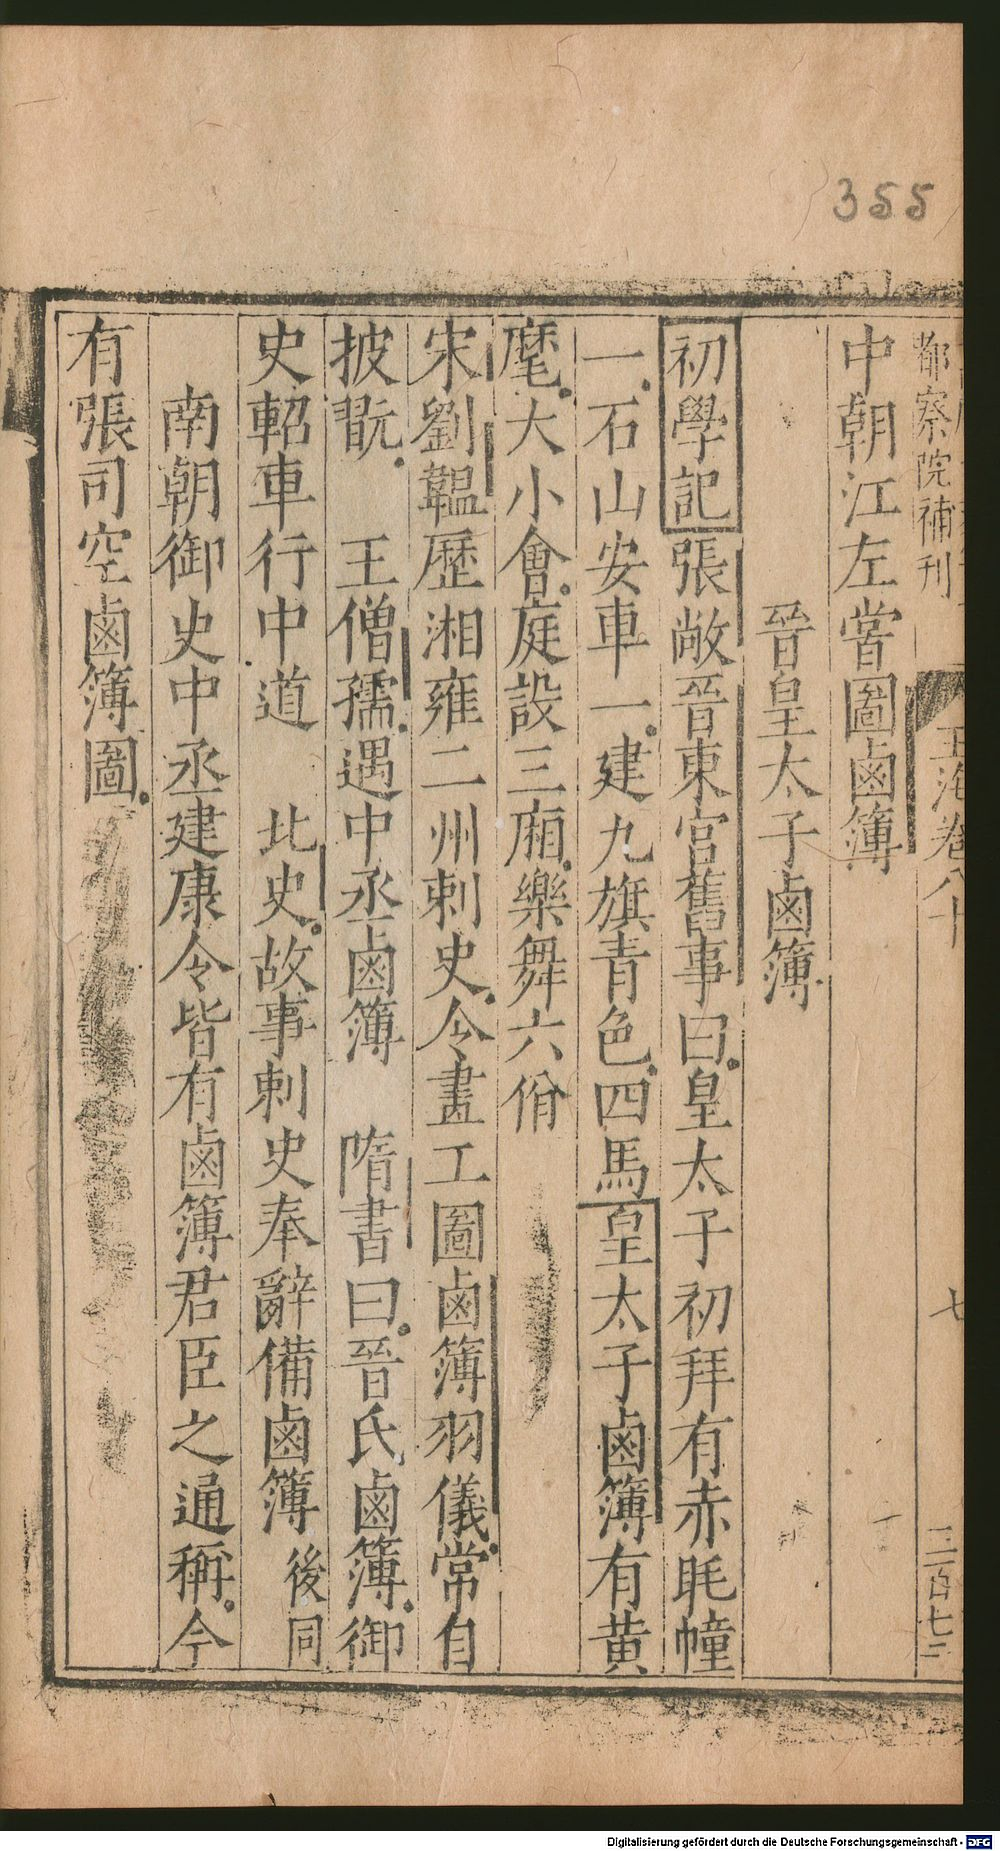 355
都察院補刊 玉海卷八十 七 三百七三
中朝江左嘗圖鹵簿
晉皇太子鹵簿
初學記張敞晉東宮舊事曰皇太子初拜有赤眊幢
一石山安車一建九旗青色四馬皇太子鹵簿有黃
麾大小會庭設三廂樂舞六佾
宋劉韞歷湘雍二州刺史令畫工圖鹵簿羽儀常自
披翫 王僧孺遇中丞鹵簿 隋書曰晉氏鹵簿御
史軺車行中道 北史故事刺史奉辭備鹵簿後同
南朝御史中丞建康令皆有鹵簿君臣之通稱今
有張司空鹵簿圖
Digitalisierung gefördert durch die Deutsche Forschungsgemeinschaft - DFG